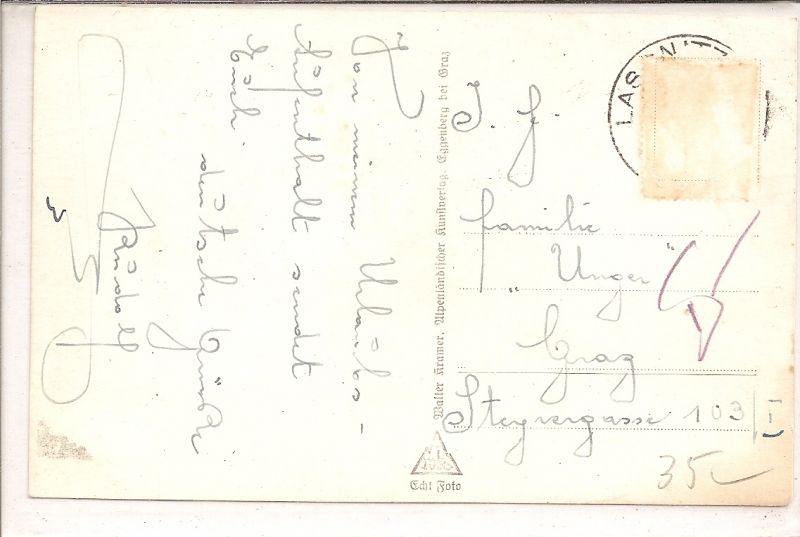 Von meinem Urlaubs-
aufenthalt sendet
Euch
deutsche Grüße
Rudolf
Walter Kramer, Alpenländischer Kunstverlag, Eggenberg bei Graz
Echt Foto
LASSNITZ
Familie
„Unger“
Graz
Steyrergasse 103/I
35